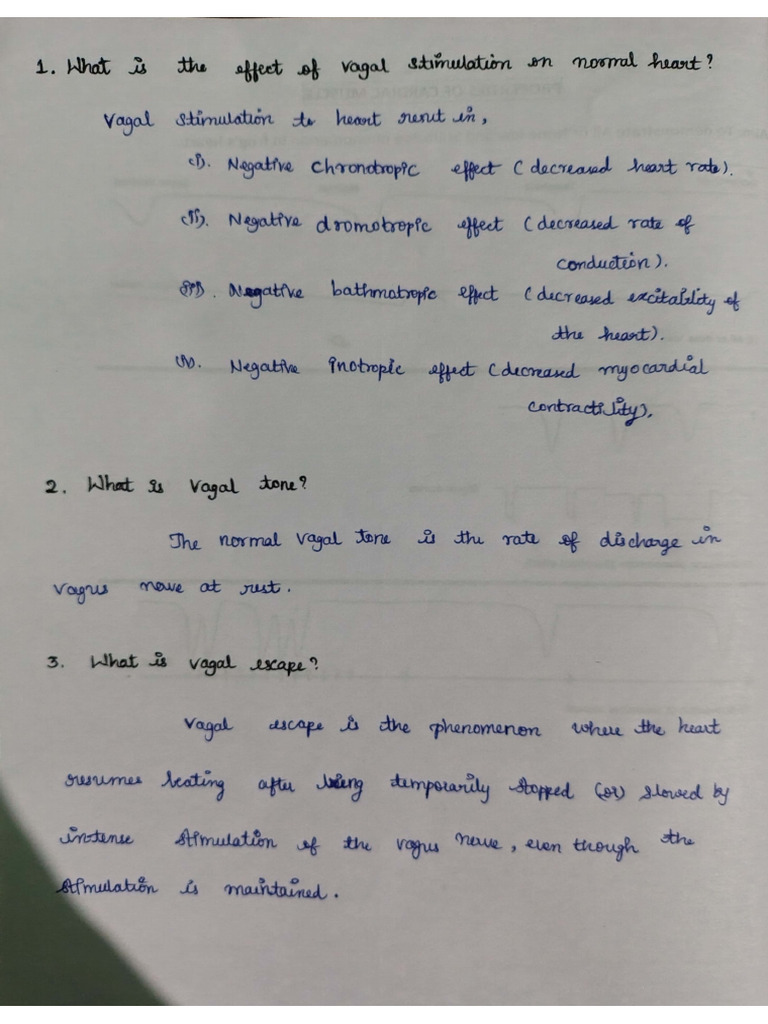 1. What is the effect of vagal stimulation on normal heart?
Vagal stimulation to heart result in,
(i). Negative chronotropic effect (decreased heart rate).
(ii). Negative dromotropic effect (decreased rate of
conduction).
(iii). Negative bathmotropic effect (decreased excitability of
the heart).
(iv). Negative inotropic effect (decreased myocardial
contractility).
2. What is vagal tone?
The normal vagal tone is the rate of discharge in
vagus nerve at rest.
3. What is vagal escape?
Vagal escape is the phenomenon where the heart
resumes beating after being temporarily stopped (or) slowed by
intense stimulation of the vagus nerve, even though the
stimulation is maintained.